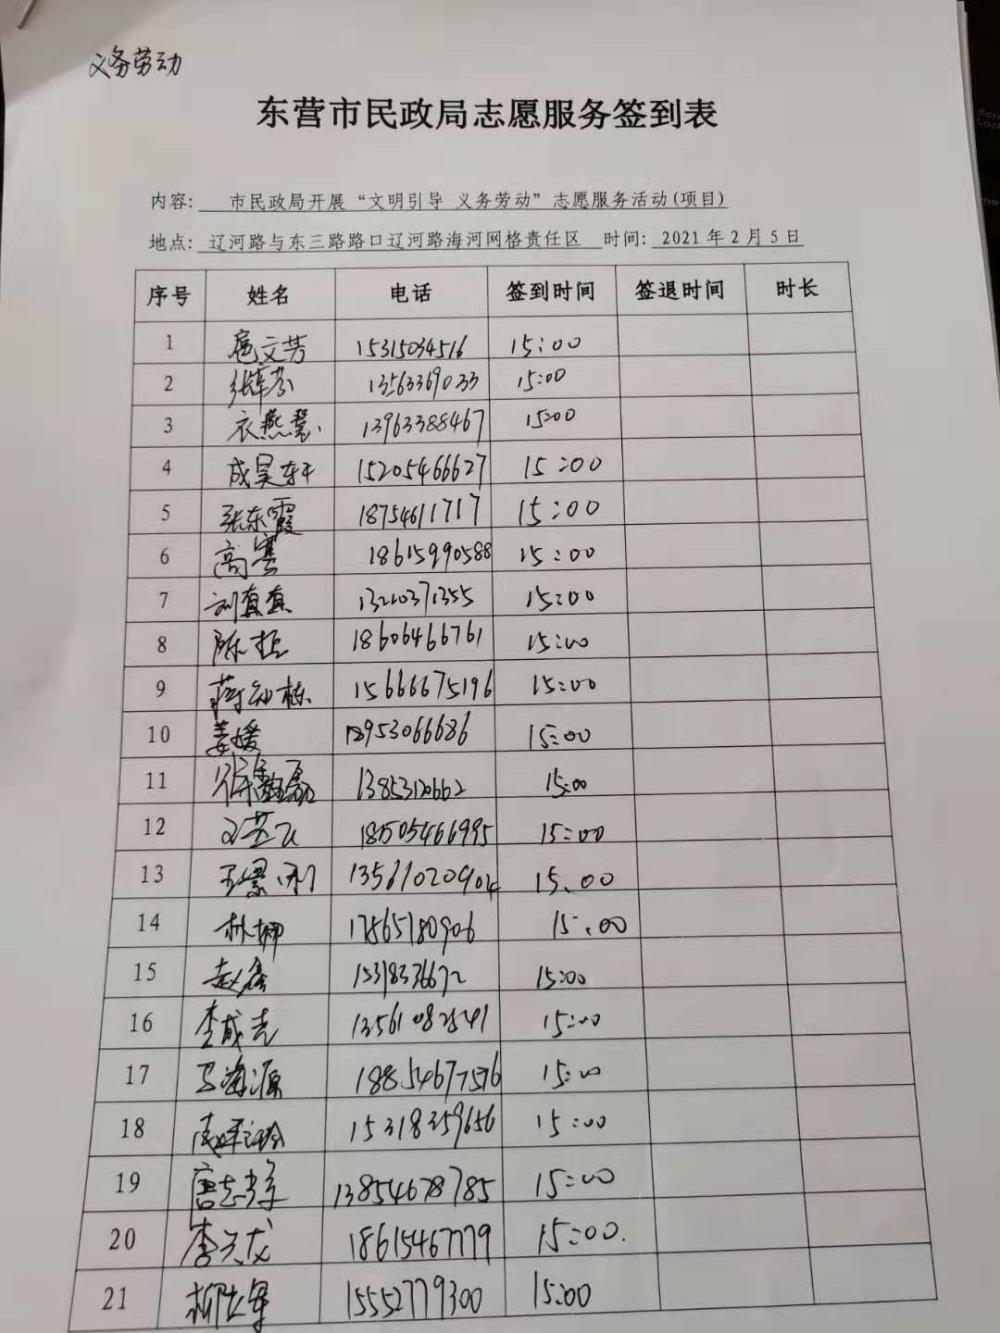 义务劳动
东营市民政局志愿服务签到表
内容: 市民政局开展“文明引导 义务劳动”志愿服务活动(项目)
地点: 辽河路与东三路路口辽河路海河网格责任区 时间: 2021年2月5日
序号 姓名 电话 签到时间 签退时间 时长
1 扈文芳 15315034516 15:00
2 13563369033 15:00
3 衣燕慧 13963388467 15:00
4 成昊轩 15205466627 15:00
5 张东霞 18754611717 15:00
6 高雲 18615990588 15:00
7 刘真真 13210371355 15:00
8 陈哲 18606466761 15:00
9 蒋幼栋 15666675196 15:00
10 姜媛 18953066686 15:00
11 15:00
12 18505466995 15:00
13 王景刚 13561020904 15:00
14 17865780906 15:00
15 赵鑫 15:00
16 李成志 15:00
17 马海源 18854677576 15:00
18 15318359656 15:00
19 唐志学 13854678785 15:00
20 李兴龙 18615467779 15:00.
21 柳学军 15552779300 15:00